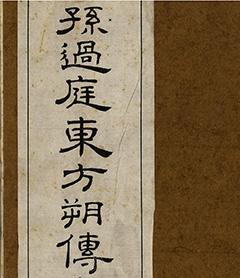 孫過庭東方朔傳